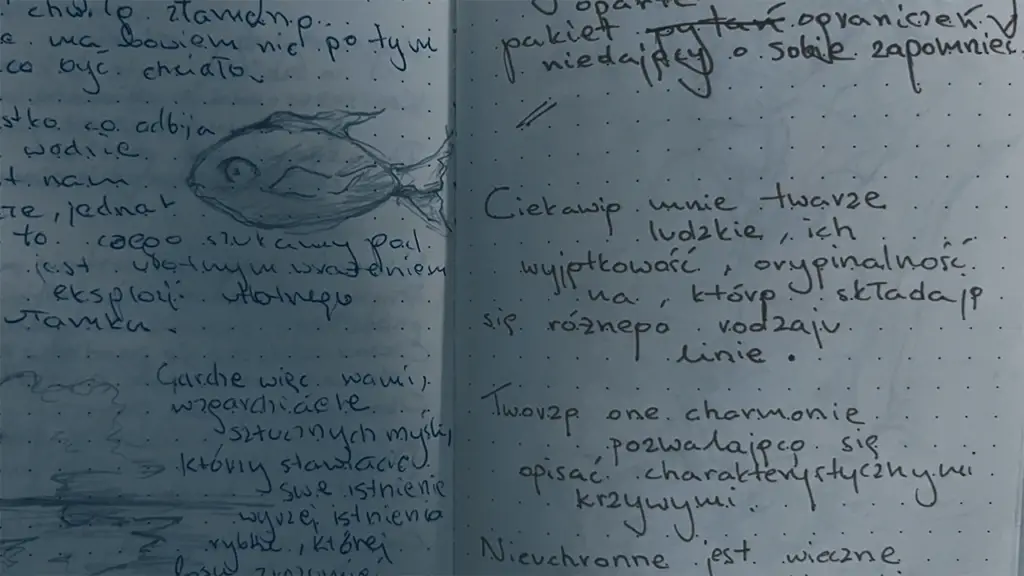 chwilę złamdno...
e ma bowiem nic po tymi
co być chciało.
stko co odbija
wodzie
t nam
rze, jednak
to czego szukamy pod
jest ulotnym wrażeniem
eksplozji ulotnego
ułamku.
Gardzę więc wami,
wzgardziciele
sztucznych myśli,
którzy stawiacie
swe istnienie
wyżej istnienia
rybki, której
losu
oparł
pakiet pytań ograniczeń
niedający o sobie zapomnieć.
Ciekawią mnie twarze
ludzkie, ich
wyjątkowość, oryginalność
na, którą składają
się różnego rodzaju
linie.
Tworzą one charmonię
pozwalającą się
opisać charakterystycznymi
krzywymi.
Nieuchronne jest wieczne